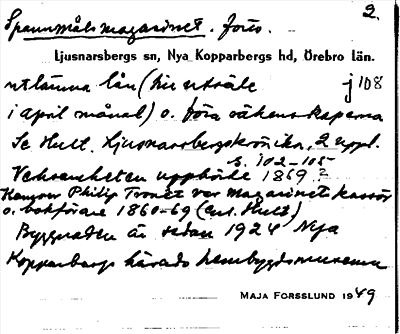 Spannmålsmagasinet. forts. 2.
Ljusnarsbergs sn, Nya Kopparbergs hd, Örebro län.
utlämna lån (hu utsäde j 108
i april månad) o. föra räkenskaperna
Se Hult. Ljusnarsbergskrönika, 2 uppl.
s. 102-105
Verksamheten upphörde 1869?
Philip Tronet var magasinets kassör
o. bokförare 1860-69 (enl. Hult)
Byggnaden är sedan 1924 Nya
Kopparbergs härads hembygdsmuseum
MAJA FORSSLUND 1949